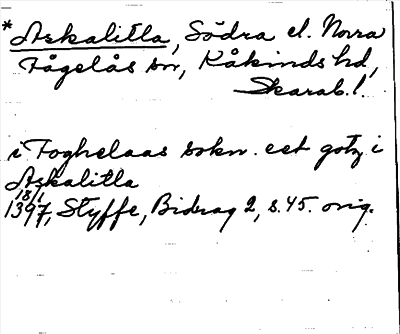 *Askalitla, Södra el. Norra
Fågelås sn, Kåkinds hd,
Skarab.l.
i Foghelaas sokn. eet gotz i
Askalitla
18/1
1397, Styffe, Bidrag 2, s. 45. orig.